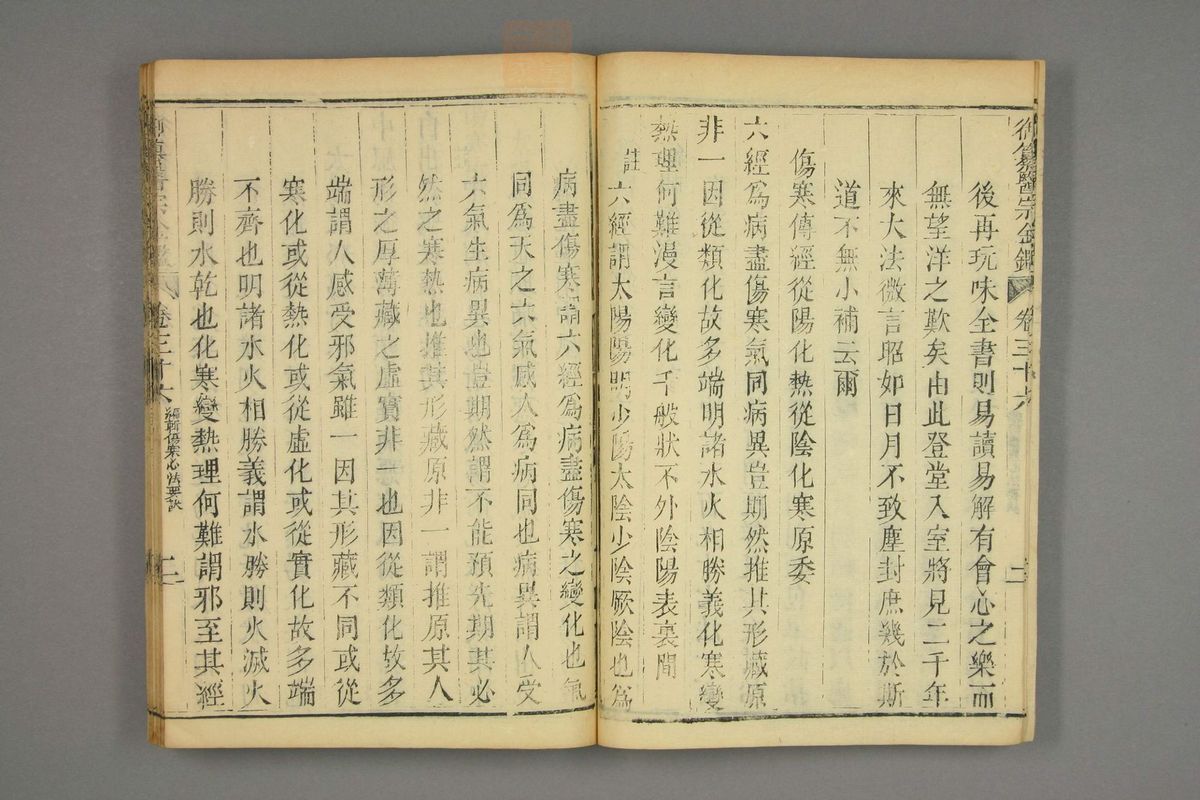 御纂醫宗金鑑 卷三十六 二
後再玩味全書則易讀易解有會心之樂而
無望洋之歎矣由此登堂入室將見二千年
來大法微言昭如日月不致塵封庶幾於斯
道不無小補云爾
傷寒傳經從陽化熱從陰化寒原委
六經爲病盡傷寒氣同病異豈期然推其形藏原
非一因從類化故多端明諸水火相勝義化寒變
熱理何難漫言變化千般狀不外陰陽表裏間
註六經謂太陽陽明少陽太陰少陰厥陰也爲
病盡傷寒謂六經爲病盡傷寒之變化也氣
同爲天之六氣感人爲病同也病異謂人受
六氣生病異也豈期然謂不能預先期其必
然之寒熱也推其形藏原非一謂推原其人
形之厚薄藏之虛實非一也因從類化故多
端謂人感受邪氣雖一因其形藏不同或從
寒化或從熱化或從虛化或從實化故多端
不齊也明諸水火相勝義謂水勝則火滅火
勝則水乾也化寒變熱理何難謂邪至其經
卷三十六 編輯傷寒心法要訣 二